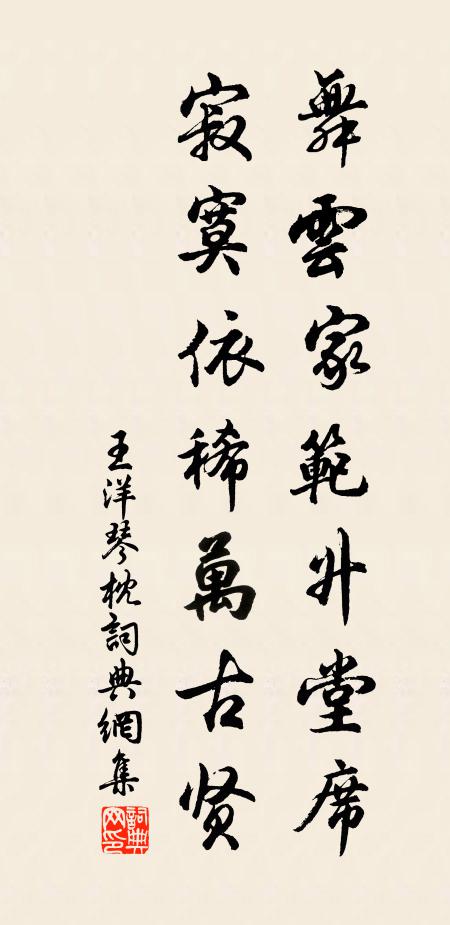 舞雲家範升堂席
寂寞依稀萬古贤
王洋琴枕詞典網集
詞典網印